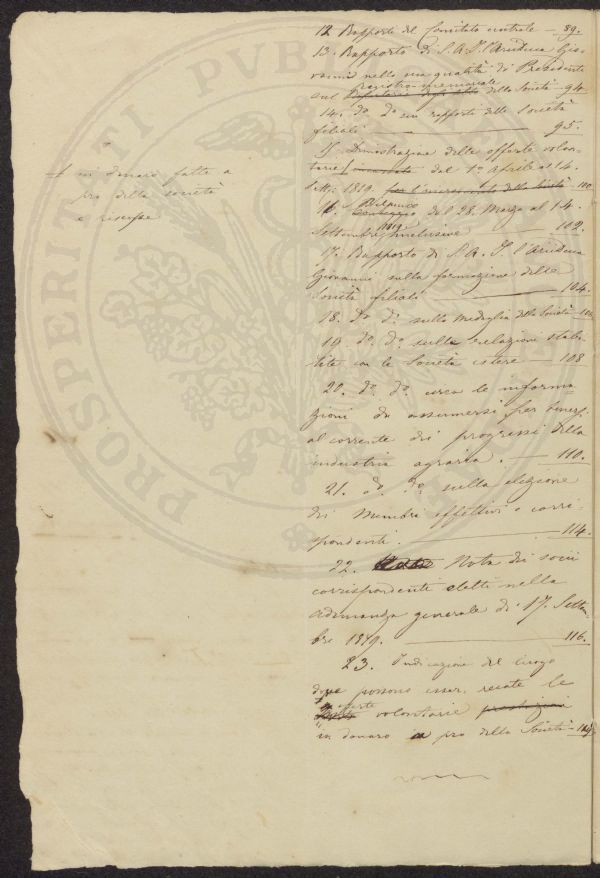 12. Rapporti del Comitato centrale — 89.
13. Rapporto di S. A. I. l'Arciduca Gio-
vanni nella sua qualità di Presidente
sul della Società — 94.
14. do do sui rapporti delle Società
filiali — 95.
15. Dimostrazione delle offerte volon-
tarie dal 1o Aprile al 14.
1819. — 100.
16. Bilancio dal 28. Marzo al 14.
Settembre 1819 inclusive — 102.
17. Rapporto di S. A. I. l'Arciduca
Giovanni sulla formazione delle
Società filiali — 104.
18. do do sulla Medaglia della Società
19. do do sulle relazioni stabi-
lite con le Società estere — 108
20. do do circa le informa
zioni da assumersi per tenersi
al corrente dei progressi della
industria agraria. — 110.
21. do do sulla elezione
dei Membri effettivi e corri-
spondenti. — 114.
22. Nota dei socii
corrispondenti eletti nella
Adunanza generale di 17. Settem-
bre 1819. — 116.
23. Indicazione del luogo
dove possono esser recate le
offerte volontarie prestazioni
in danaro a pro della Società
in danaro fatte a
pro della società
e risorse
PROSPERITATI PVBLICAE